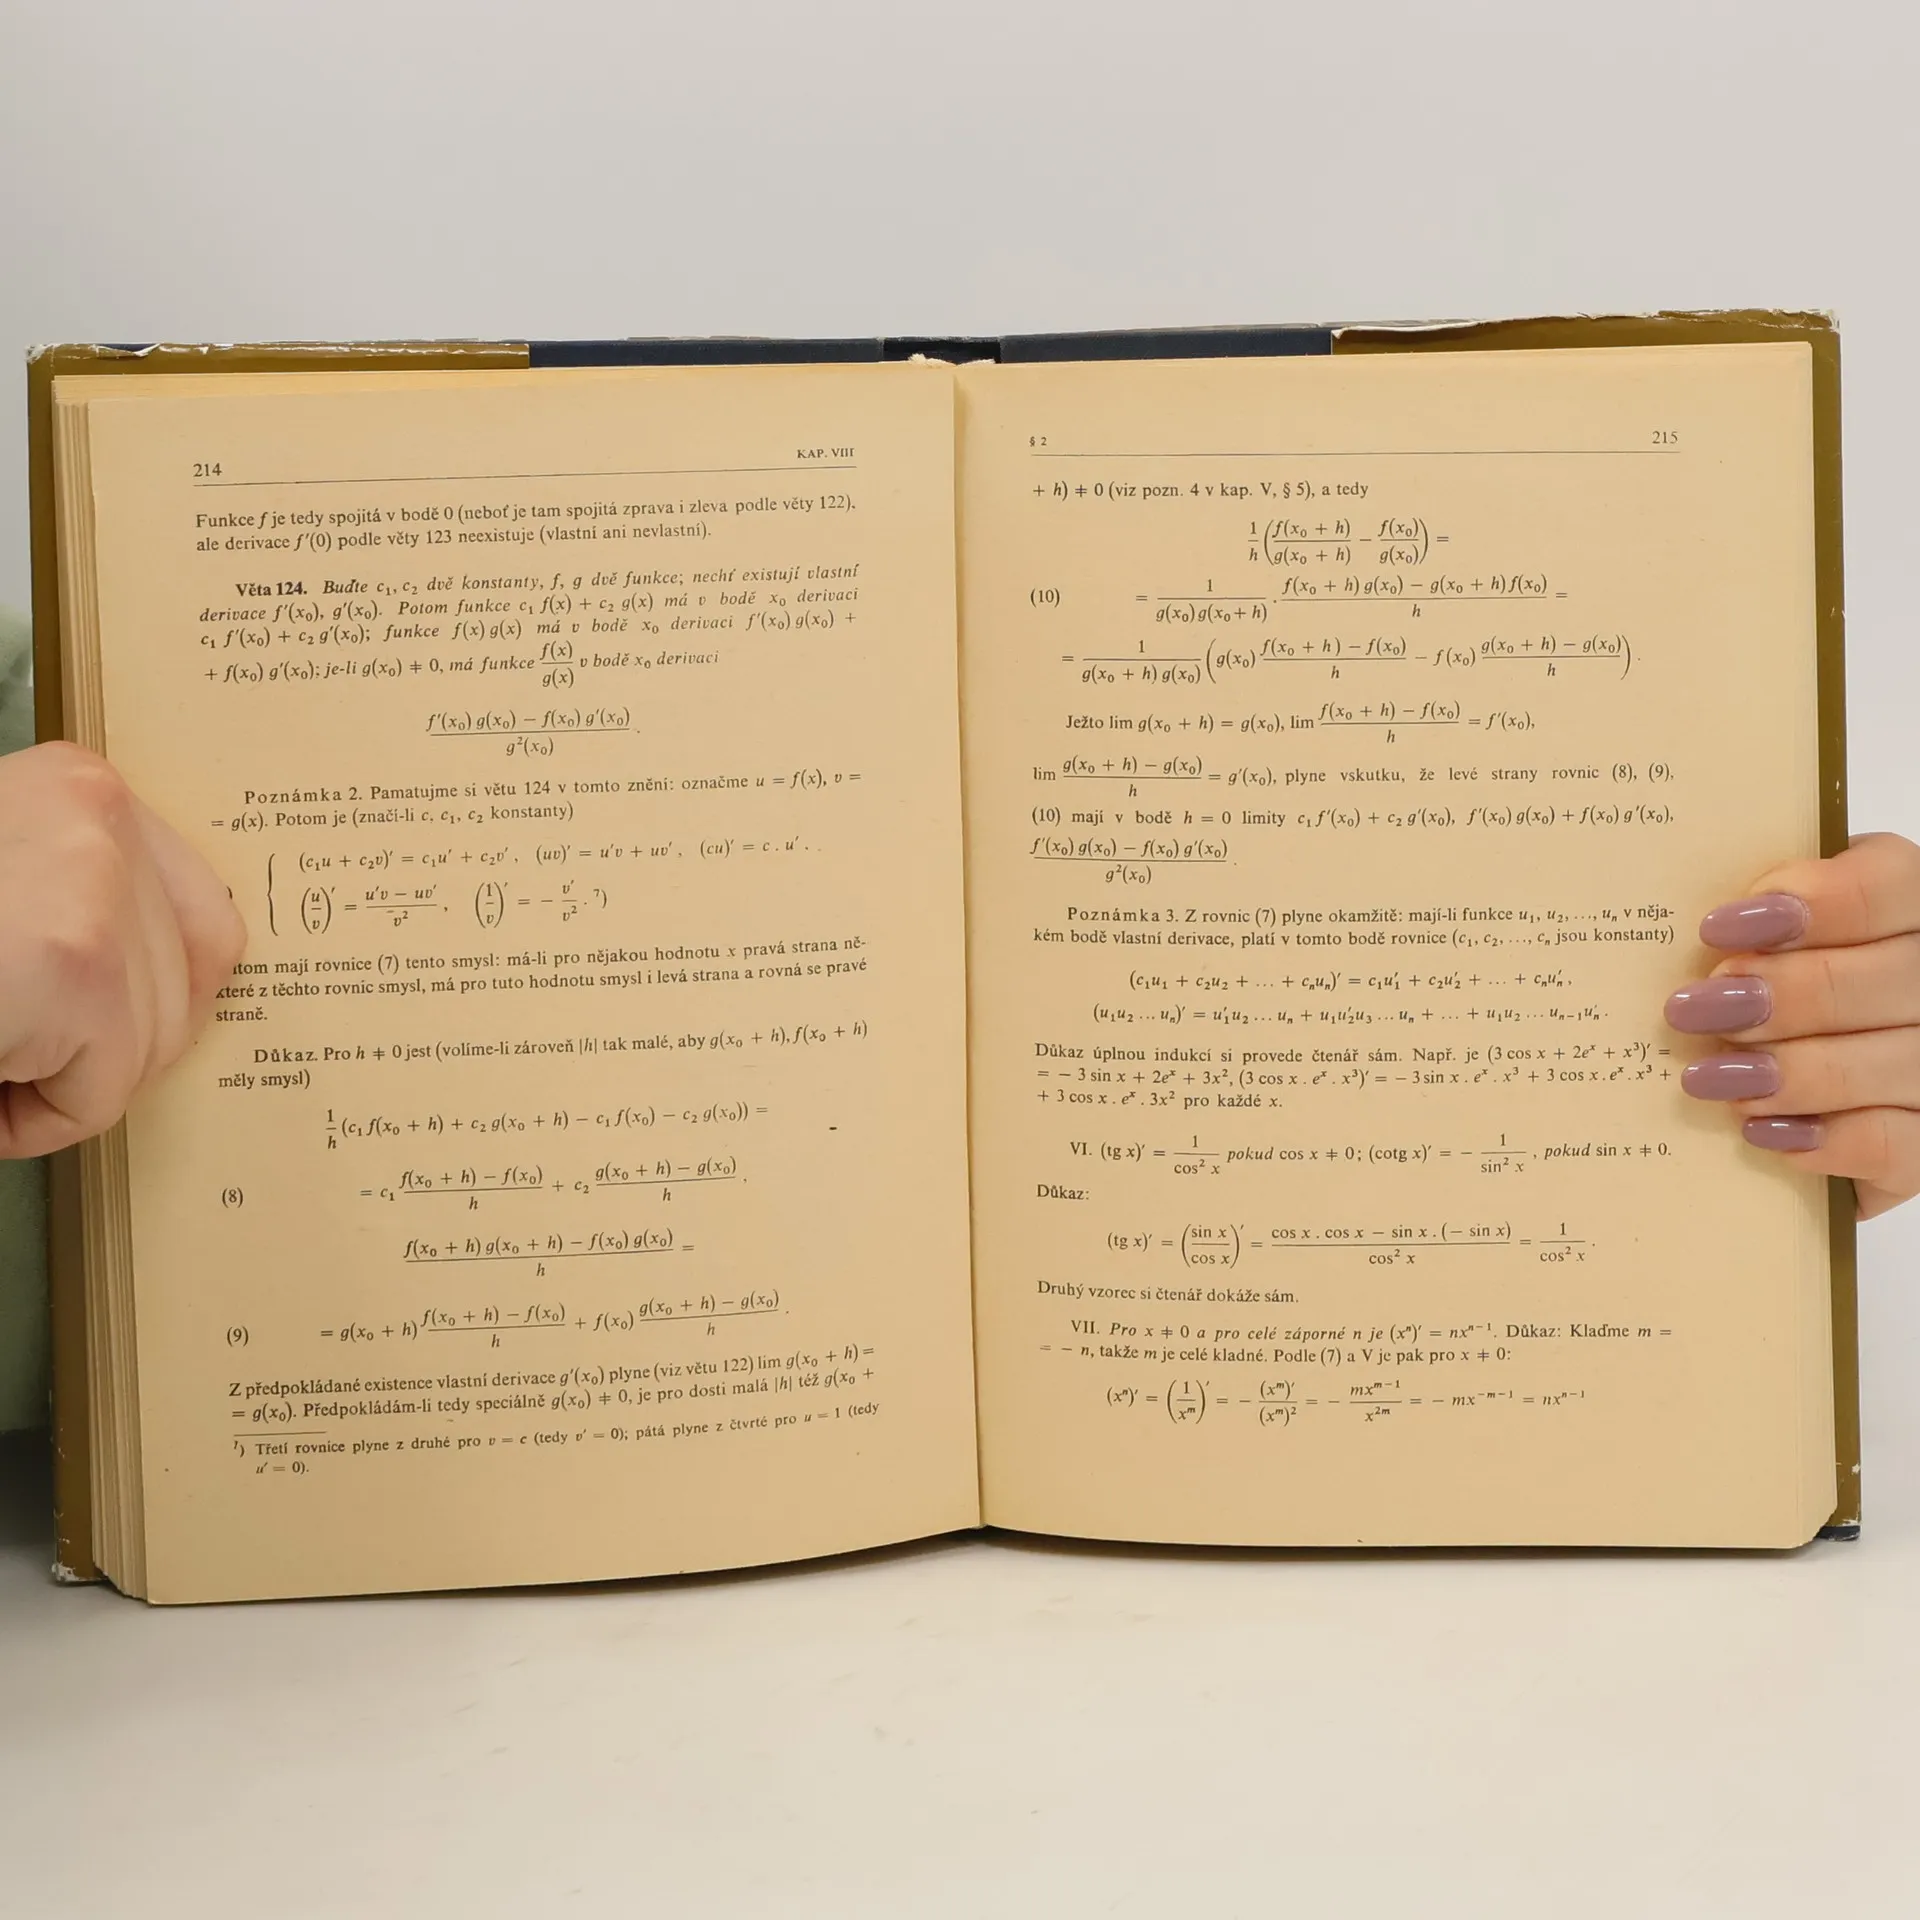 214 KAP. VIII
Funkce f je tedy spojitá v bodě 0 (neboť je tam spojitá zprava i zleva podle věty 122),
ale derivace f′(0) podle věty 123 neexistuje (vlastní ani nevlastní).
Věta 124. Buďte c₁, c₂ dvě konstanty, f, g dvě funkce; nechť existují vlastní
derivace f′(x₀), g′(x₀). Potom funkce c₁ f(x) + c₂ g(x) má v bodě x₀ derivaci
c₁ f′(x₀) + c₂ g′(x₀); funkce f(x) g(x) má v bodě x₀ derivaci f′(x₀) g(x₀) +
+ f(x₀) g′(x₀); je-li g(x₀) ≠ 0, má funkce f(x)/g(x) v bodě x₀ derivaci
(f′(x₀) g(x₀) − f(x₀) g′(x₀))/g²(x₀) .
Poznámka 2. Pamatujme si větu 124 v tomto znění: označme u = f(x), v =
= g(x). Potom je (značí-li c, c₁, c₂ konstanty)
(c₁u + c₂v)′ = c₁u′ + c₂v′ , (uv)′ = u′v + uv′ , (cu)′ = c . u′ .
(u/v)′ = (u′v − uv′)/v² , (1/v)′ = − v′/v² . ⁷)
itom mají rovnice (7) tento smysl: má-li pro nějakou hodnotu x pravá strana ně-
které z těchto rovnic smysl, má pro tuto hodnotu smysl i levá strana a rovná se pravé
straně.
Důkaz. Pro h ≠ 0 jest (volíme-li zároveň |h| tak malé, aby g(x₀ + h), f(x₀ + h)
měly smysl)
1/h (c₁ f(x₀ + h) + c₂ g(x₀ + h) − c₁ f(x₀) − c₂ g(x₀)) =
(8) = c₁ (f(x₀ + h) − f(x₀))/h + c₂ (g(x₀ + h) − g(x₀))/h ,
(f(x₀ + h) g(x₀ + h) − f(x₀) g(x₀))/h =
(9) = g(x₀ + h) (f(x₀ + h) − f(x₀))/h + f(x₀) (g(x₀ + h) − g(x₀))/h .
Z předpokládané existence vlastní derivace g′(x₀) plyne (viz větu 122) lim g(x₀ + h) =
= g(x₀). Předpokládám-li tedy speciálně g(x₀) ≠ 0, je pro dosti malá |h| též g(x₀ +
⁷) Třetí rovnice plyne z druhé pro v = c (tedy v′ = 0); pátá plyne z čtvrté pro u = 1 (tedy
u′ = 0).
§ 2 215
+ h) ≠ 0 (viz pozn. 4 v kap. V, § 5), a tedy
1/h (f(x₀ + h)/g(x₀ + h) − f(x₀)/g(x₀)) =
(10) = 1/(g(x₀) g(x₀ + h)) . (f(x₀ + h) g(x₀) − g(x₀ + h) f(x₀))/h =
= 1/(g(x₀ + h) g(x₀)) (g(x₀) (f(x₀ + h) − f(x₀))/h − f(x₀) (g(x₀ + h) − g(x₀))/h) .
Ježto lim g(x₀ + h) = g(x₀), lim (f(x₀ + h) − f(x₀))/h = f′(x₀),
lim (g(x₀ + h) − g(x₀))/h = g′(x₀), plyne vskutku, že levé strany rovnic (8), (9),
(10) mají v bodě h = 0 limity c₁ f′(x₀) + c₂ g′(x₀), f′(x₀) g(x₀) + f(x₀) g′(x₀),
(f′(x₀) g(x₀) − f(x₀) g′(x₀))/g²(x₀) .
Poznámka 3. Z rovnic (7) plyne okamžitě: mají-li funkce u₁, u₂, ..., uₙ v něja-
kém bodě vlastní derivace, platí v tomto bodě rovnice (c₁, c₂, ..., cₙ jsou konstanty)
(c₁u₁ + c₂u₂ + ... + cₙuₙ)′ = c₁u₁′ + c₂u₂′ + ... + cₙuₙ′ ,
(u₁u₂ ... uₙ)′ = u₁′u₂ ... uₙ + u₁u₂′u₃ ... uₙ + ... + u₁u₂ ... uₙ₋₁uₙ′ .
Důkaz úplnou indukcí si provede čtenář sám. Např. je (3 cos x + 2eˣ + x³)′ =
= − 3 sin x + 2eˣ + 3x², (3 cos x . eˣ . x³)′ = − 3 sin x . eˣ . x³ + 3 cos x . eˣ . x³ +
+ 3 cos x . eˣ . 3x² pro každé x.
VI. (tg x)′ = 1/cos² x pokud cos x ≠ 0; (cotg x)′ = − 1/sin² x , pokud sin x ≠ 0.
Důkaz:
(tg x)′ = (sin x/cos x)′ = (cos x . cos x − sin x . (− sin x))/cos² x = 1/cos² x .
Druhý vzorec si čtenář dokáže sám.
VII. Pro x ≠ 0 a pro celé záporné n je (xⁿ)′ = nxⁿ⁻¹. Důkaz: Klaďme m =
= − n, takže m je celé kladné. Podle (7) a V je pak pro x ≠ 0:
(xⁿ)′ = (1/xᵐ)′ = − (xᵐ)′/(xᵐ)² = − mxᵐ⁻¹/x²ᵐ = − mx⁻ᵐ⁻¹ = nxⁿ⁻¹